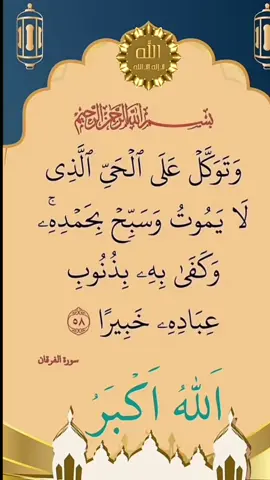 الله
لا إله إلا الله
بسم الله الرحمن الرحيم
وَتَوَكَّلۡ عَلَى ٱلۡحَيِّ ٱلَّذِي
لَا يَمُوتُ وَسَبِّحۡ بِحَمۡدِهِۦۚ
وَكَفَىٰ بِهِۦ بِذُنُوبِ
عِبَادِهِۦ خَبِيرًا ٥٨
سورة الفرقان
اَللّٰهُ اَكْبَرُ